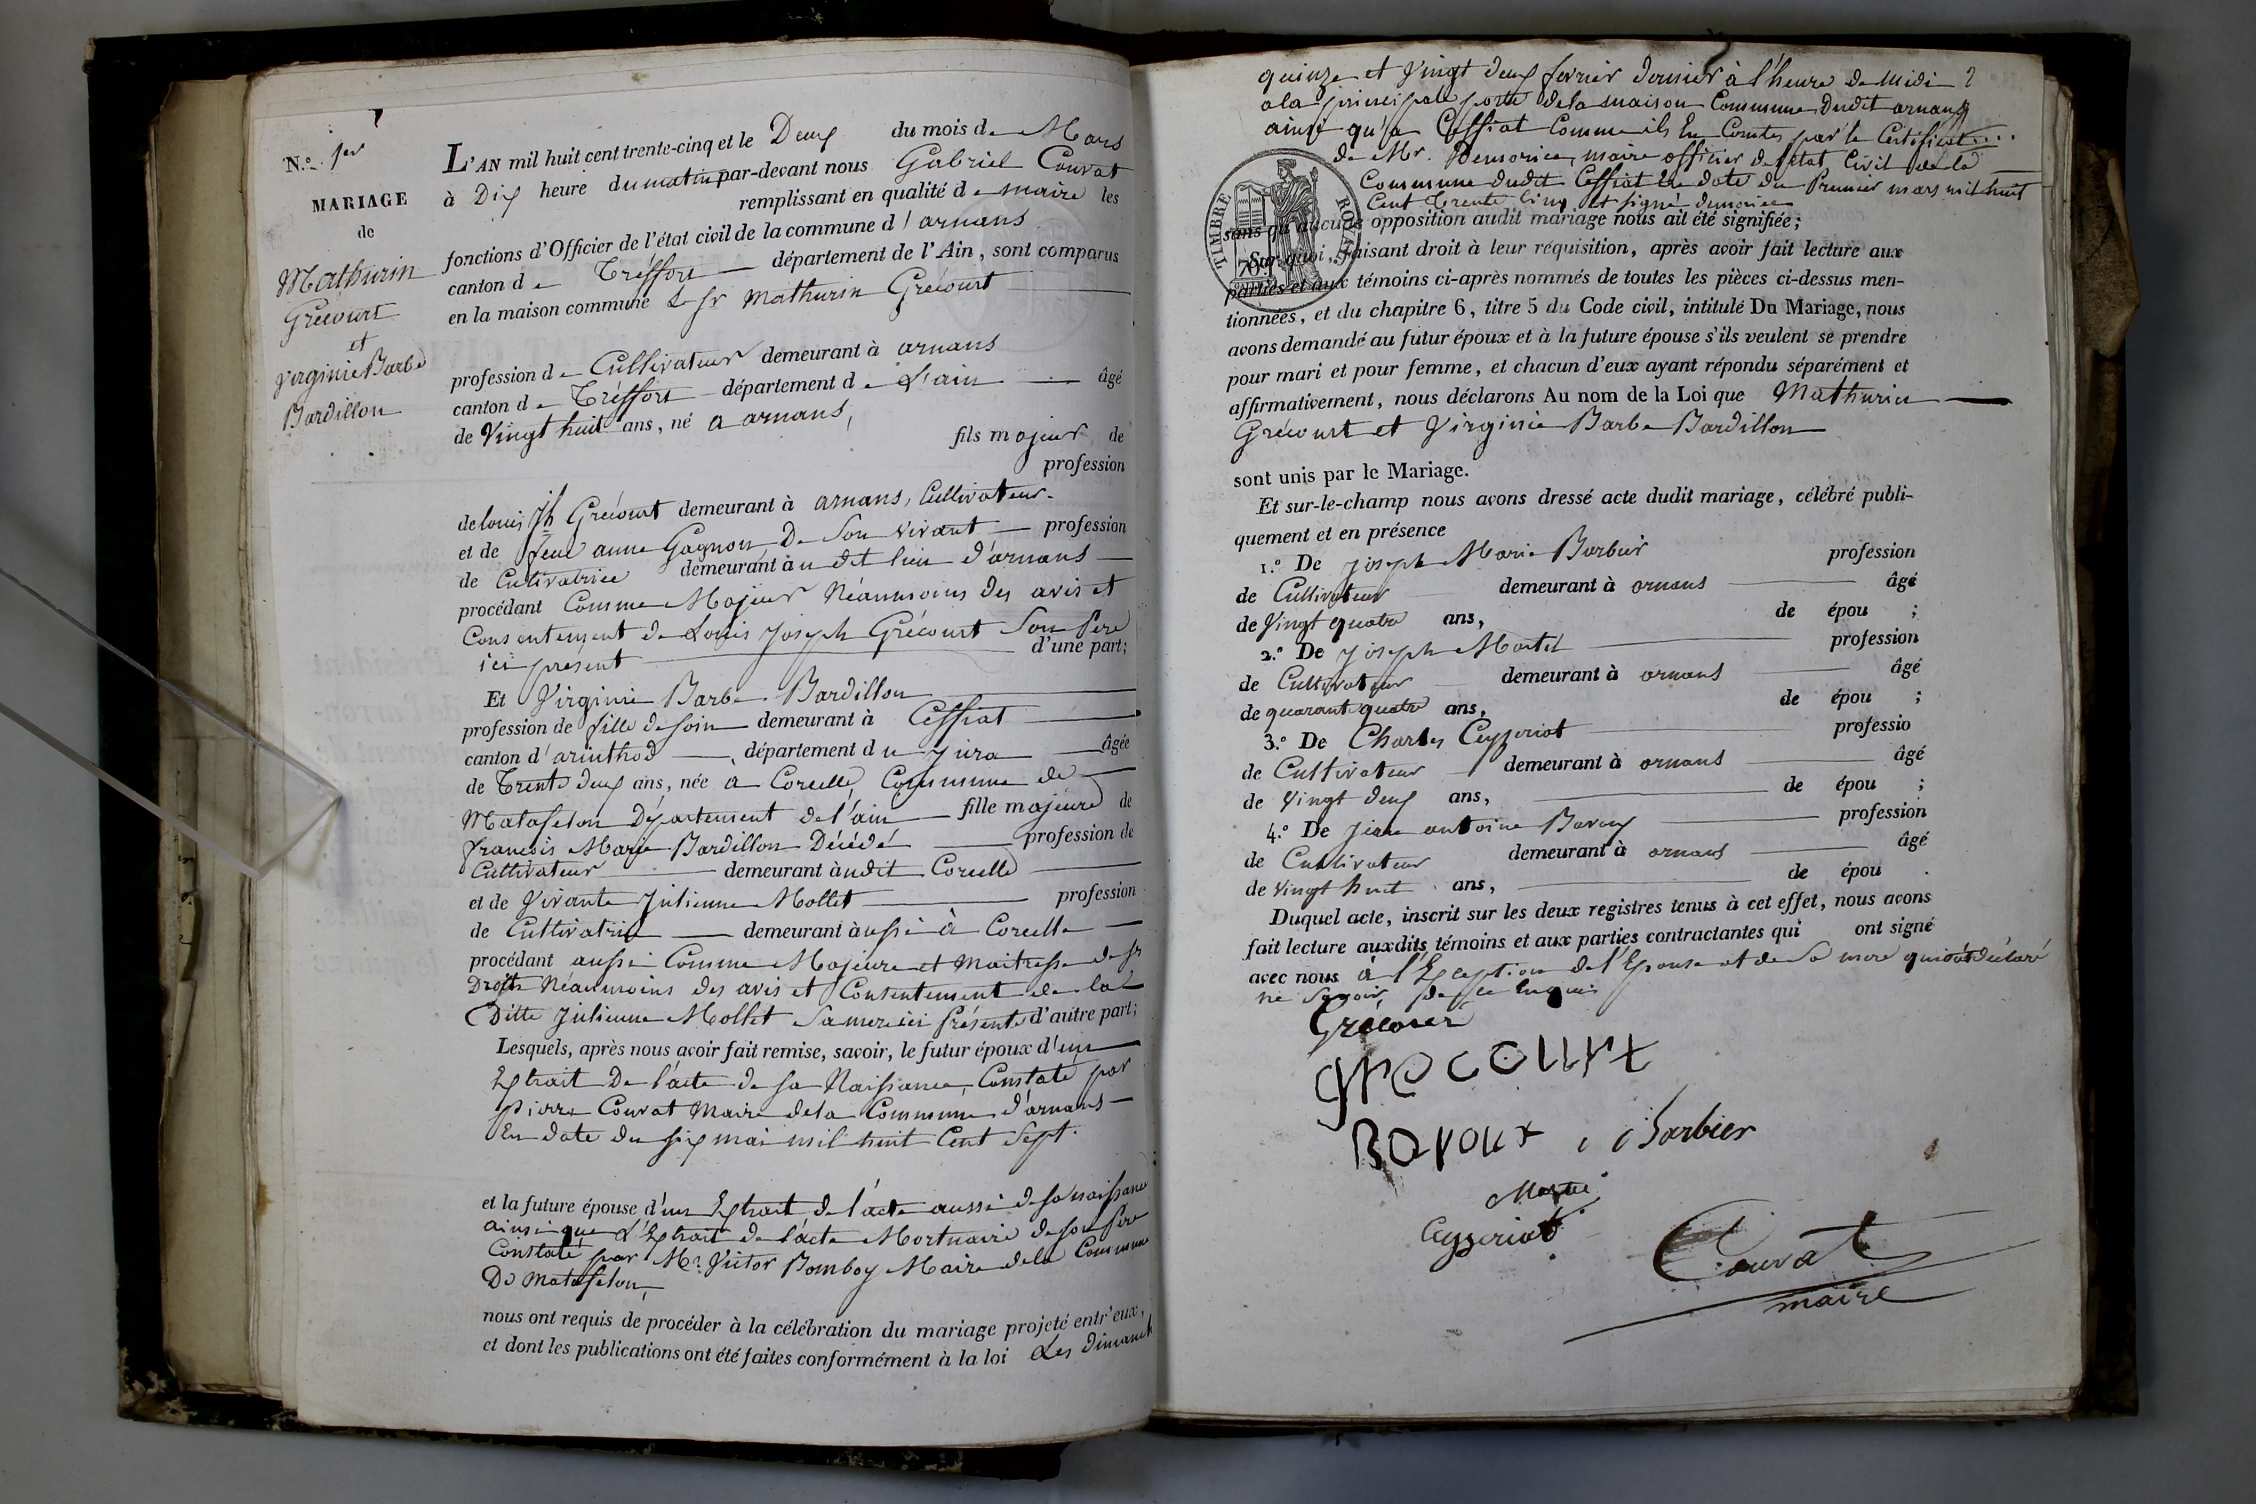 N.o 1er
MARIAGE
de
Mathurin
Grécourt
et
Virginie Barbe
Bardillon
L'AN mil huit cent trente-cinq et le Deux du mois de Mars
à Dix heure du matin par-devant nous Gabriel Couvat
remplissant en qualité de maire les
fonctions d'Officier de l'état civil de la commune d'arnans
canton de Tréffort département de l'Ain, sont comparus
en la maison commune Le Sr Mathurin Grécourt
profession de Cultivateur demeurant à arnans
canton de Tréffort département de L'ain âgé
de Vingt huit ans, né a arnans,
fils majeur de
profession
de louis Jh Grécourt demeurant à arnans, Cultivateur.
et de feue anne Gagnon De Son vivant profession
de Cultivatrice demeurant àu dit lieu d'arnans
procédant Comme Majeur Néanmoins des avis et
Consentement de Louis Joseph Grécourt Son Pere
ici présent d'une part;
Et Virginie Barbe Bardillon
profession de fille de soin demeurant à Ceffiat
canton d'arinthod département du Jura âgée
de Trente deux ans, née a Corcelle, Commune de
Matafelon Département de l'ain fille majeure de
françois Marie Bardillon Décédé profession de
Cultivateur demeurant àudit Corcelle
et de Vivante Julienne Mollet profession
de Cultivatrice demeurant àussi à Corcelle
procédant aussi Comme Majeure et Maitresse de ses
Droits Néanmoins des avis et Consentement de la
Ditte Julienne Mollet Sa mere ici Présente d'autre part;
Lesquels, après nous avoir fait remise, savoir, le futur époux d'un
Extrait De l'acte de sa Naissance, Constaté par
Pierre Couvat Maire de la Commune d'arnans
En date du six mai mil huit Cent Sept.
et la future épouse d'un Extrait de l'acte aussi de sa naissance
ainsi que L'Extrait de l'acte Mortuaire de son Pere
Constaté par Mr. Victor Bomboy Maire de la Commune
De Matafelon,
nous ont requis de procéder à la célébration du mariage projeté entr'eux,
et dont les publications ont été faites conformément à la loi Les dimanch
quinze et Vingt deux fevrier dernier à l'heure de Midi
a la principale porte de la maison Commune Dudit arnans
ainsi qu'a Ceffiat Comme il En Conste par le Certificat
de Mr. maire officier de létat Civil de la
Commune dudit Ceffiat En date du Premier mars mil huit
Cent Trente Cinq et signé
TIMBRE ROYAL
sans qu'aucune opposition audit mariage nous ait été signifiée;
Sur quoi, faisant droit à leur réquisition, après avoir fait lecture aux
parties et aux témoins ci-après nommés de toutes les pièces ci-dessus men-
tionnées, et du chapitre 6, titre 5 du Code civil, intitulé Du Mariage, nous
avons demandé au futur époux et à la future épouse s'ils veulent se prendre
pour mari et pour femme, et chacun d'eux ayant répondu séparément et
affirmativement, nous déclarons Au nom de la Loi que Mathurin
Grécourt et Virginie Barbe Bardillon
sont unis par le Mariage.
Et sur-le-champ nous avons dressé acte dudit mariage, célébré publi-
quement et en présence
1.o De Joseph Marie Barbier profession
de Cultivateur demeurant à arnans âgé
de Vingt quatre ans, de épou ;
2.o De Joseph Martel profession
de Cultivateur demeurant à arnans âgé
de quarante quatre ans, de épou ;
3.o De Charles Ceyzeriat professio
de Cultivateur demeurant à arnans âgé
de Vingt deux ans, de épou ;
4.o De antoine profession
de Cultivateur demeurant à arnans âgé
de Vingt huit ans, de épou .
Duquel acte, inscrit sur les deux registres tenus à cet effet, nous avons
fait lecture auxdits témoins et aux parties contractantes qui ont signé
avec nous à l'Exception de l'Epouse et de Sa mere qui ont déclaré
ne Savoir, de ce Enquis
Grécourt
grecourt
Bavoux Barbier
Ceyzeriat
Couvat
maire